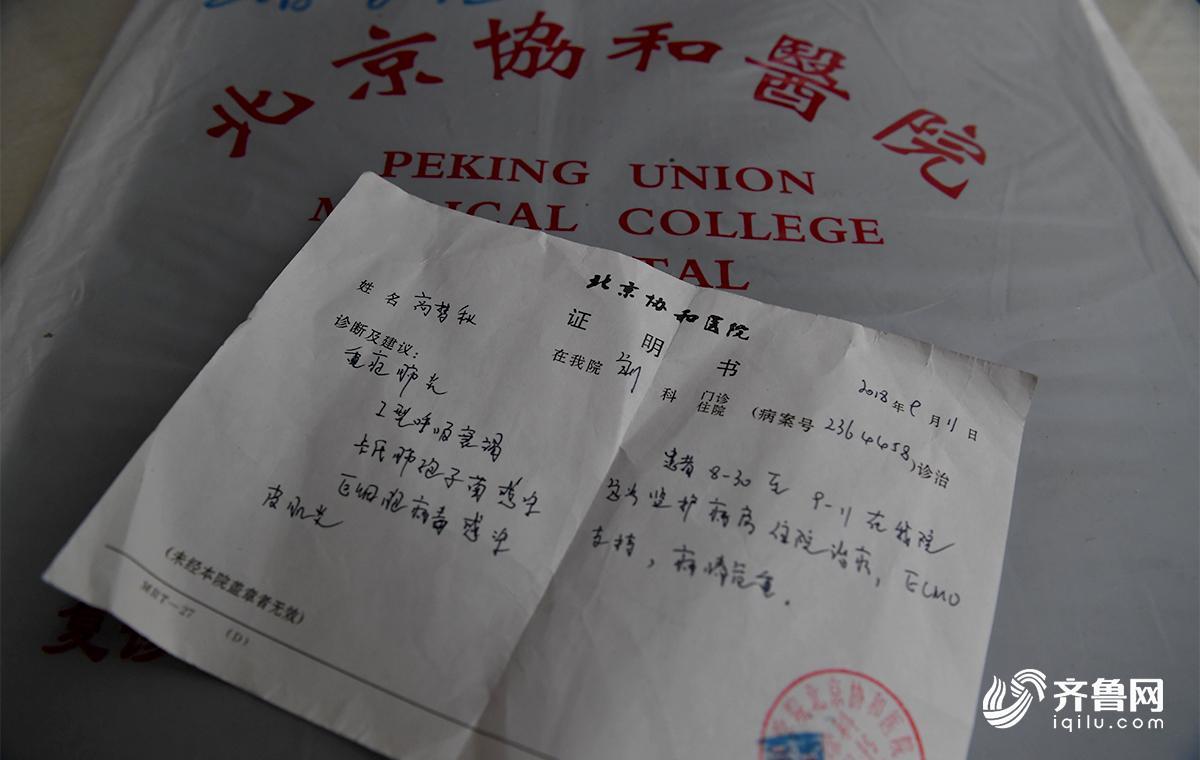 北京協和醫院
PEKING UNION
MEDICAL COLLEGE
TAL
北京协和医院
证明书
2018年9月11日
姓名 高梦秋
在我院 科 门诊 住院 (病案号 2364458)诊治
诊断及建议:
重症肺炎
I型呼吸衰竭
卡氏肺孢子菌感染
巨细胞病毒感染
皮肌炎
患者 8-30 至 9-11 在我院
监护病房住院治疗,ECMO
支持,病情危重.
(未经本院盖章者无效)
MRT—27 (D)
复诊
院北京协和医院
齐鲁网
iqilu.com